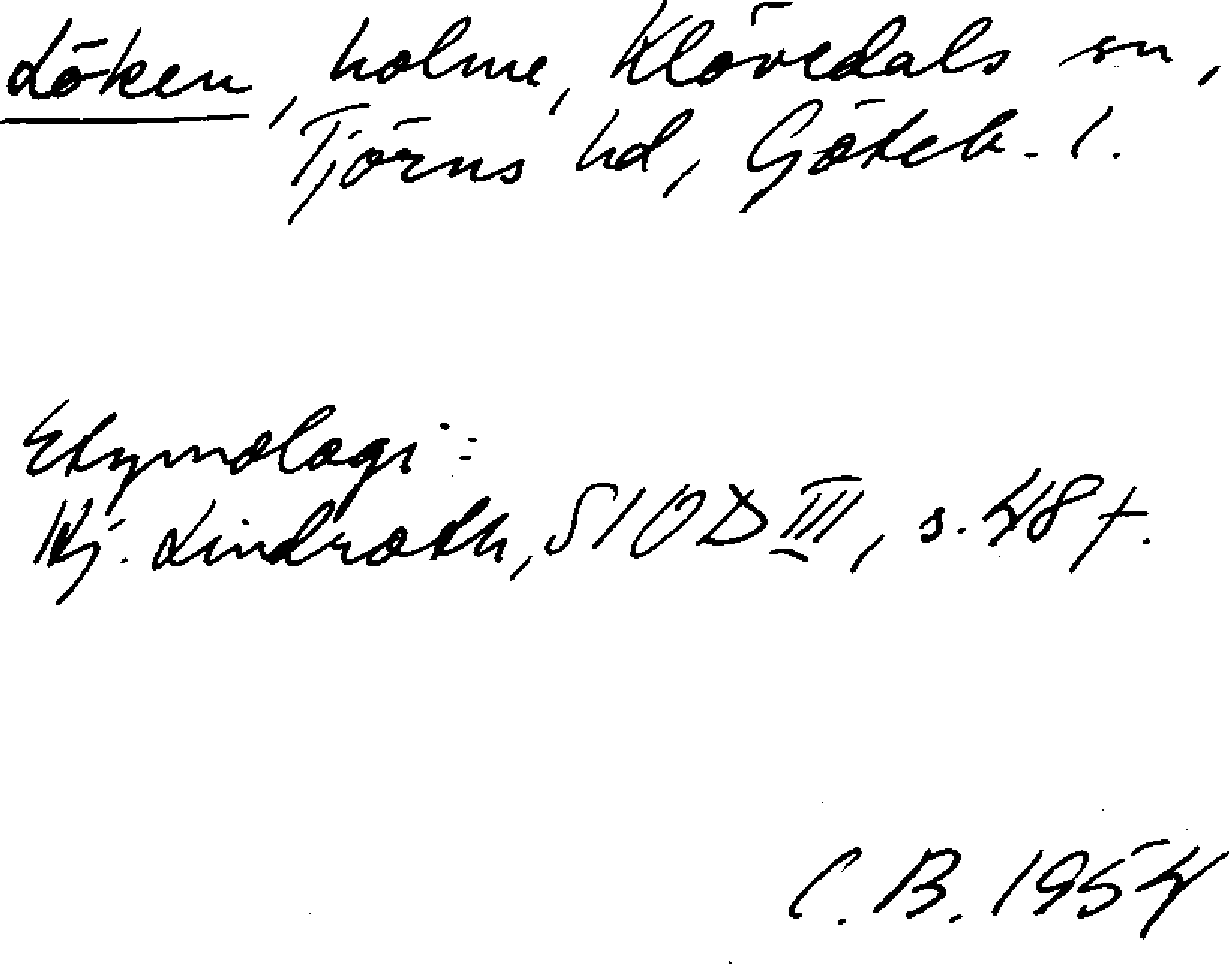 Löken, holme, Klövedals sn,
Tjörns hd, Göteb. l.
Etymologi:
Hj. Lindroth, SIOD III, s. 48 f.
C. B. 1954